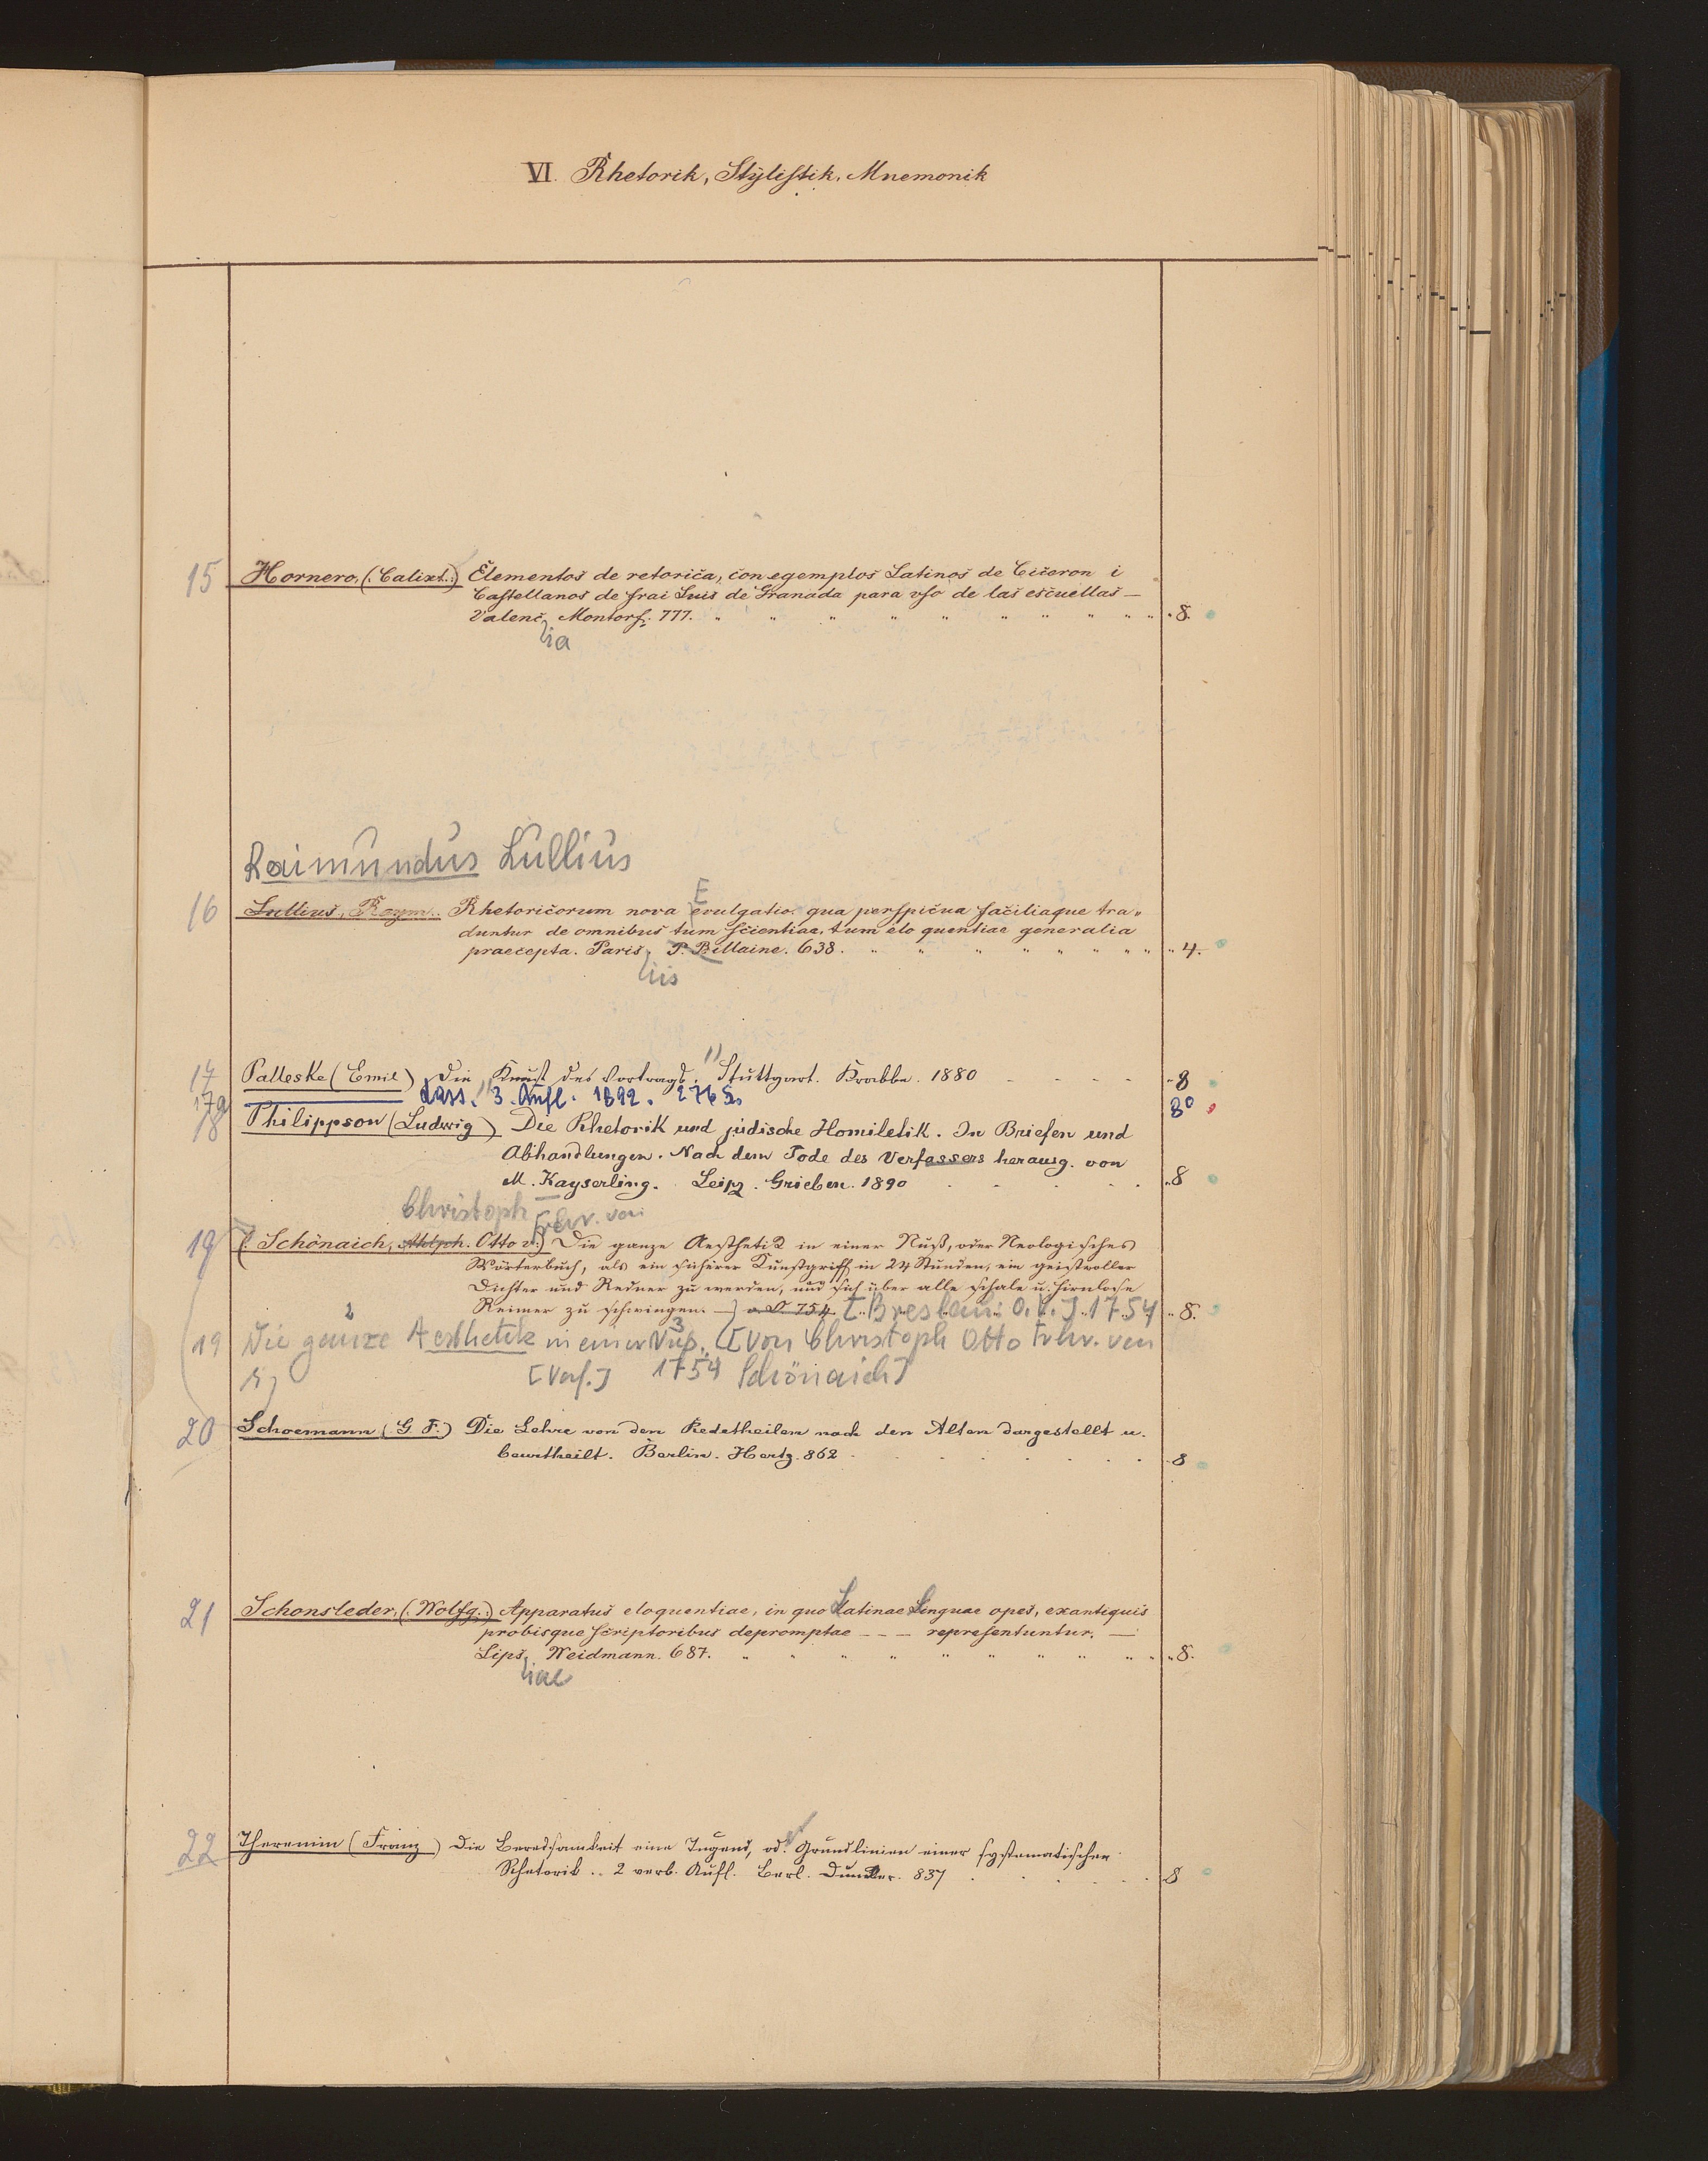 VI. Rhetorik, Stylistik, Mnemonik
15 Hornero, (: Calixt.:) Elementos de retorica, con egemplos Latinos de Ciceron i
Castellanos de frai Luis de Granada para vso de las escuellas —
Valenc, Montorf. 777. " " " " " " " " " " 8.
lia
Raimundus Lullius
16 Lullius, Raym. Rhetoricorum nova evulgatio. qua perspicua faciliaque tra„
E
duntur de omnibus tum scientiae, tum eloquentiae generalia
praecepta. Paris, P. Billaine. 638. " " " " " " " " 4.
iis
17 Palleske (Emil) Die „Kunst des Vortrags." Stuttgart. Krabbe. 1880 - - - - - 8
17a dass. 3. Aufl. 1892. 276 S. 8°
18 Philippson (Ludwig) Die Rhetorik und jüdische Homiletik. In Briefen und
Abhandlungen. Nach dem Tode des Verfassers herausg. von
M. Kayserling. Leipz. Grieben. 1890 . . . . . 8
Christoph Frhr. von
19 (: Schönaich, Otto v.:) Die ganze Aesthetik in einer Nuß, oder Neologisches
Wörterbuch, als ein sicherer Kunstgriff in 24 Stunden, ein geistvoller
Dichter und Redner zu werden, und sich über alle schale u. hirnlose
Reimer zu schwingen. —] o. O. 754. [Breslau: O. V.] 1754 8.
19 Die ganze Aesthetik in einer Nuß. [Von Christoph Otto Frhr. von
2 3
[Verf.] 1754 Schönaich]
20 Schoemann (G. F.) Die Lehre von den Redetheilen nach den Alten dargestellt u.
beurtheilt. Berlin. Hertz. 862 . . . . . . . 8
21 Schonsleder, (: Wolfg.:) Apparatus eloquentiae, in quo Latinae Linguae opes, ex antiquis
probisque scriptoribus depromptae — — — representuntur. —
Lips, Weidmann. 687. " " " " " " " " " " 8.
iae
22 Theremin (Franz) Die Beredsamkeit eine Tugend, od. Grundlinien einer systematischen
Rhetorik .. 2 verb. Aufl. Berl. Duncker. 837 . . . . . 8